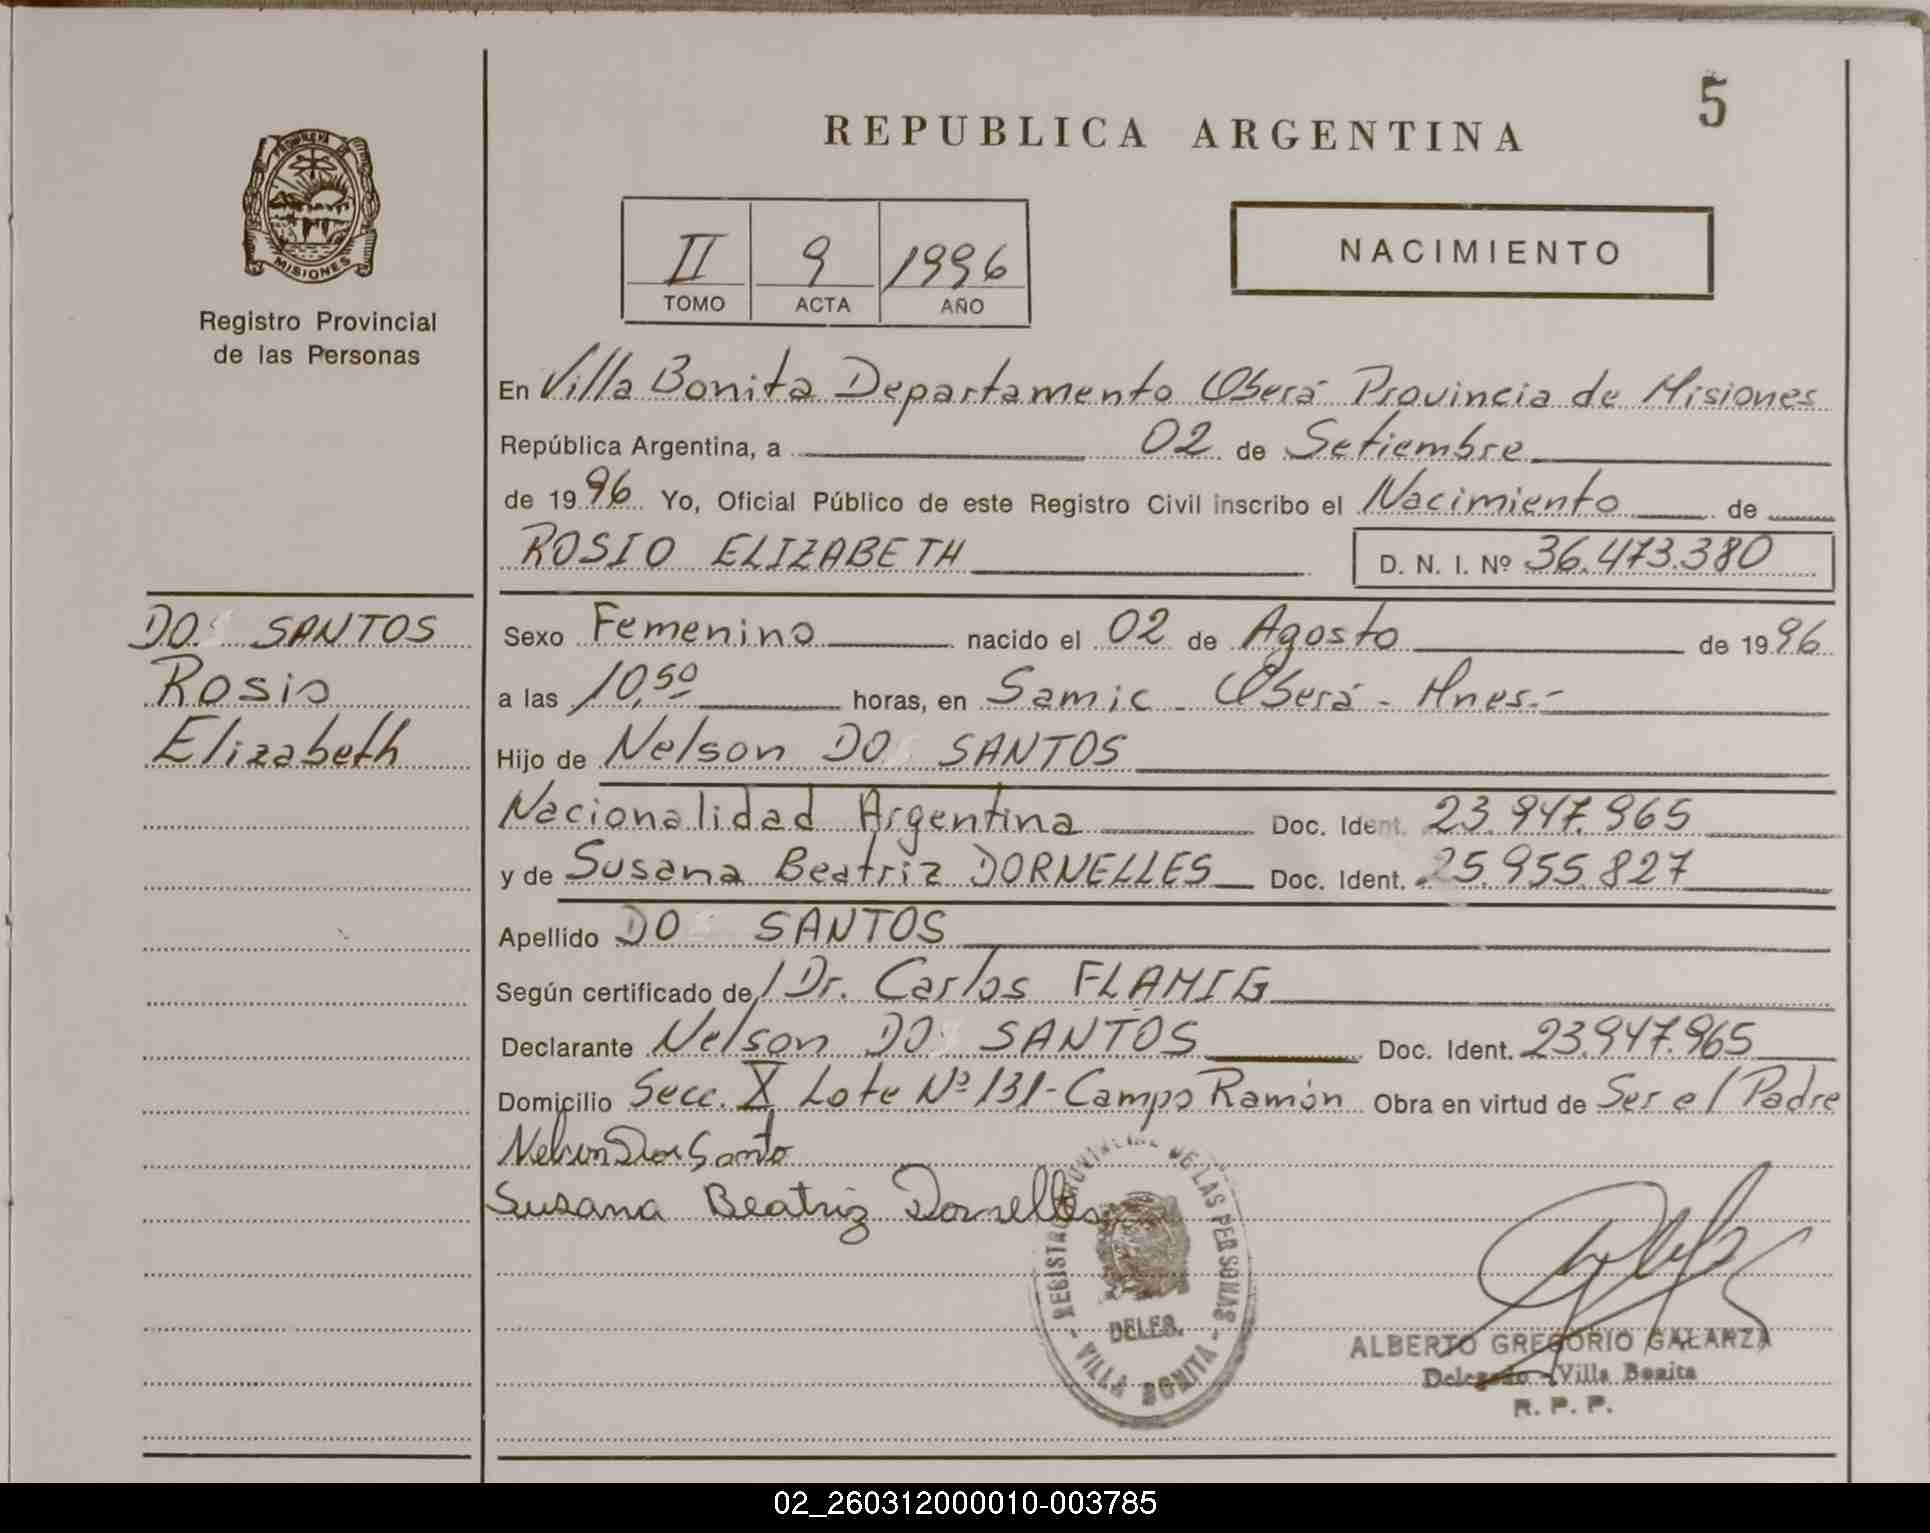 5
REPUBLICA ARGENTINA
PROVINCIA DE
MISIONES
Registro Provincial
de las Personas
II 9 1996
TOMO ACTA AÑO
NACIMIENTO
En Villa Bonita Departamento Oberá Provincia de Misiones
República Argentina, a 02 de Setiembre
de 1996 Yo, Oficial Público de este Registro Civil inscribo el Nacimiento de
ROSIO ELIZABETH D. N. I. Nº 36.473.380
DO SANTOS
Rosio
Elizabeth
Sexo Femenino nacido el 02 de Agosto de 1996
a las 10,50 horas, en Samic - Oberá - Mnes.-
Hijo de Nelson DO SANTOS
Nacionalidad Argentina Doc. Ident. 23.947.965
y de Susana Beatriz DORNELLES Doc. Ident. 25.955.827
Apellido DO SANTOS
Según certificado de / Dr. Carlos FLAMIG
Declarante Nelson DO SANTOS Doc. Ident. 23.947.965
Domicilio Secc. X Lote Nº 131 - Campo Ramón Obra en virtud de Ser el Padre
Nelson Dos Santo
Susana Beatriz Dornelles
REGISTRO PROVINCIAL DE LAS PERSONAS
DELEG.
- VILLA BONITA -
ALBERTO GREGORIO GALARZA
Delegado - Villa Bonita
R. P. P.
02_260312000010-003785